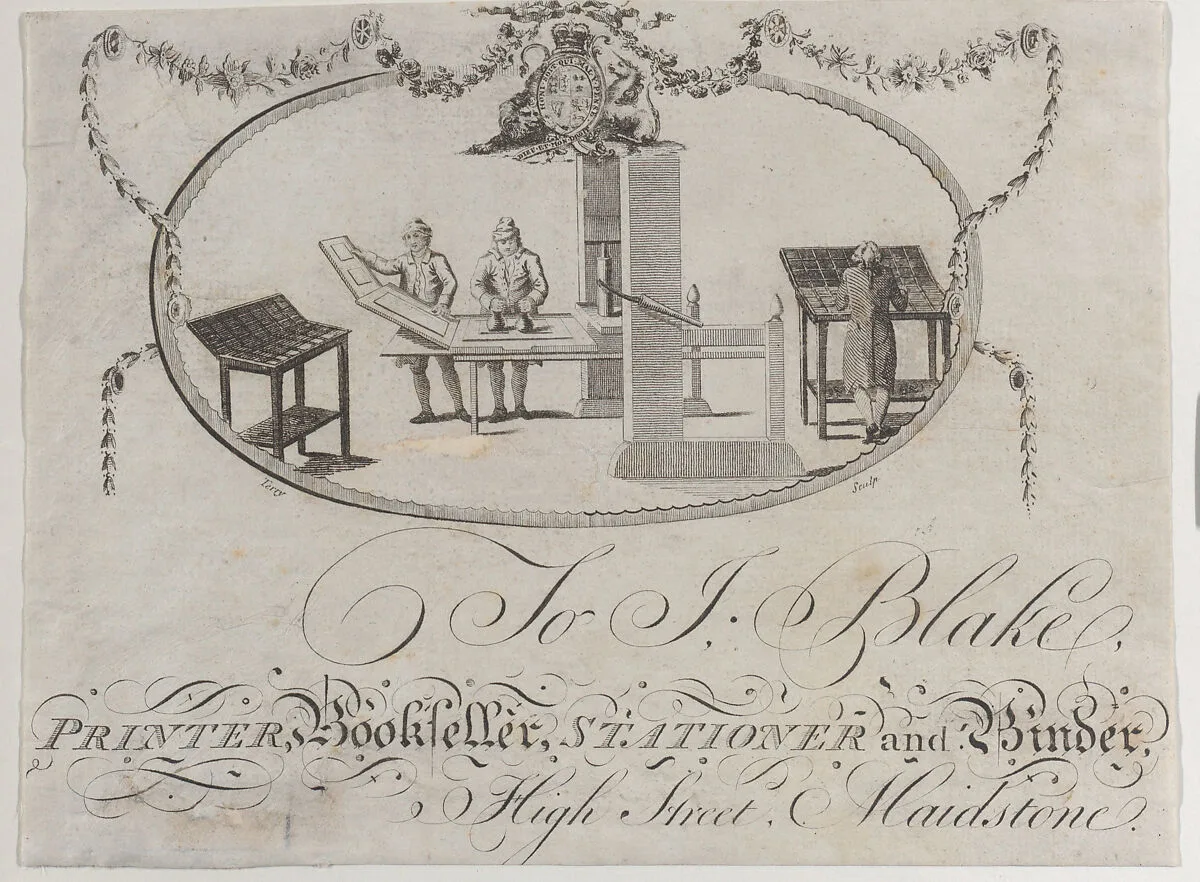 HONI SOIT QUI MAL Y PENSE
DIEU ET MON DROIT
Terry Sculp.
To J. Blake,
PRINTER, Bookſeller, STATIONER and Binder,
High Street, Maidstone.